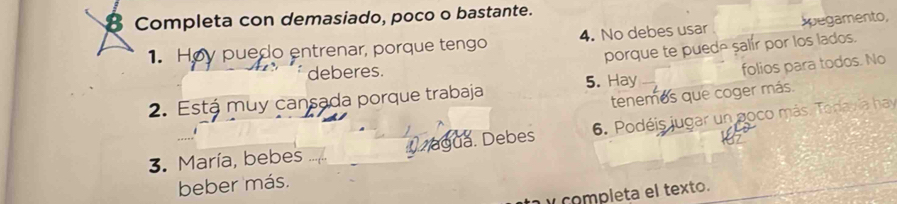 8 Completa con demasiado, poco o bastante.
1. Hoy puedo entrenar, porque tengo
deberes.
2. Está muy cansada porque trabaja
3. María, bebes
agua. Debes
beber más.
4. No debes usar pegamento,
porque te puede salir por los lados.
5. Hay folios para todos. No
tenemos que coger más.
6. Podéis jugar un poco más. Todavía hay
y completa el texto.